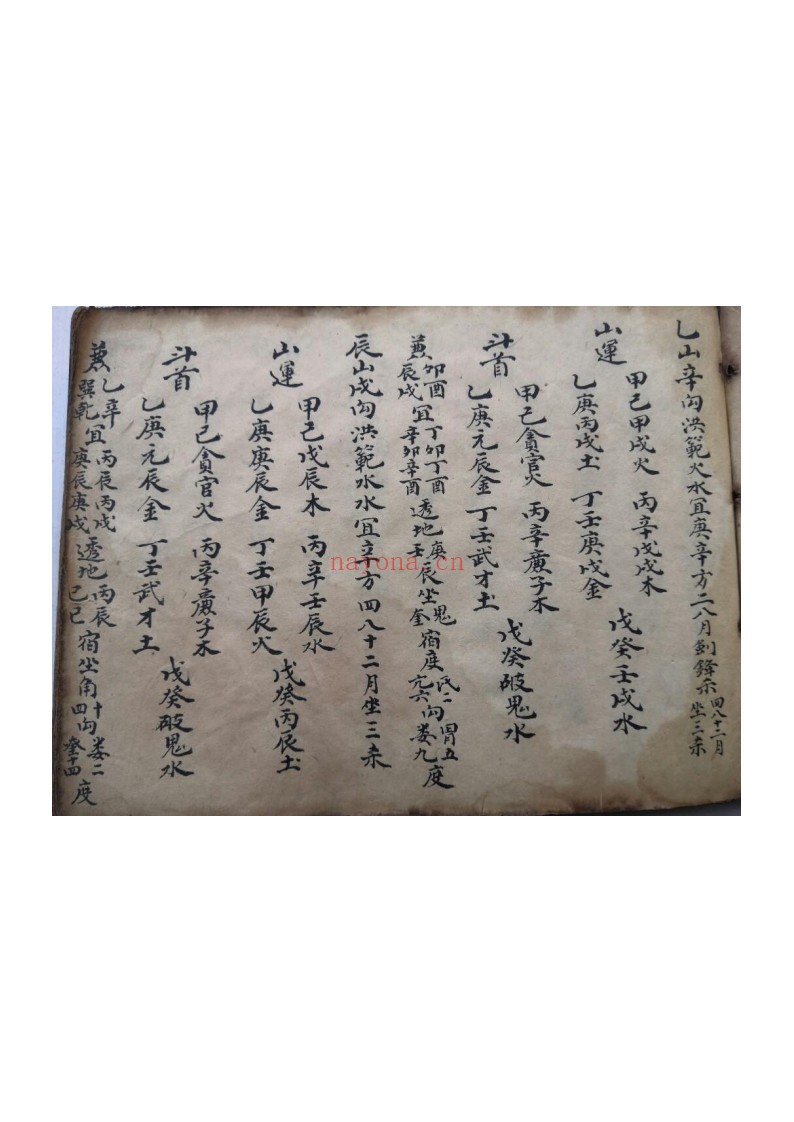 乙山辛向洪範火水宜庚辛方二八月劍鋒杀四八十二月坐三杀
山運
甲己甲戌火 丙辛戊戌木 戊癸壬戌水
乙庚丙戌土 丁壬庚戌金
斗首
甲己貪官火 丙辛廉子木 戊癸破鬼水
乙庚元辰金 丁壬武才土
兼卯酉辰戌宜丁卯丁酉辛卯辛酉透地庚辰坐鬼奎宿度氐二亢六向胃五娄九度
辰山戌向洪範水水宜辛方四八十二月坐三杀
山運
甲己戊辰木 丙辛壬辰水 戊癸丙辰土
乙庚庚辰金 丁壬甲辰火
斗首
甲己貪官火 丙辛廉子木 戊癸破鬼水
乙庚元辰金 丁壬武才土
兼乙辛巽乾宜丙辰丙戌庚辰庚戌透地丙辰己巳宿坐角十四向娄二奎十四度
nayona.cn